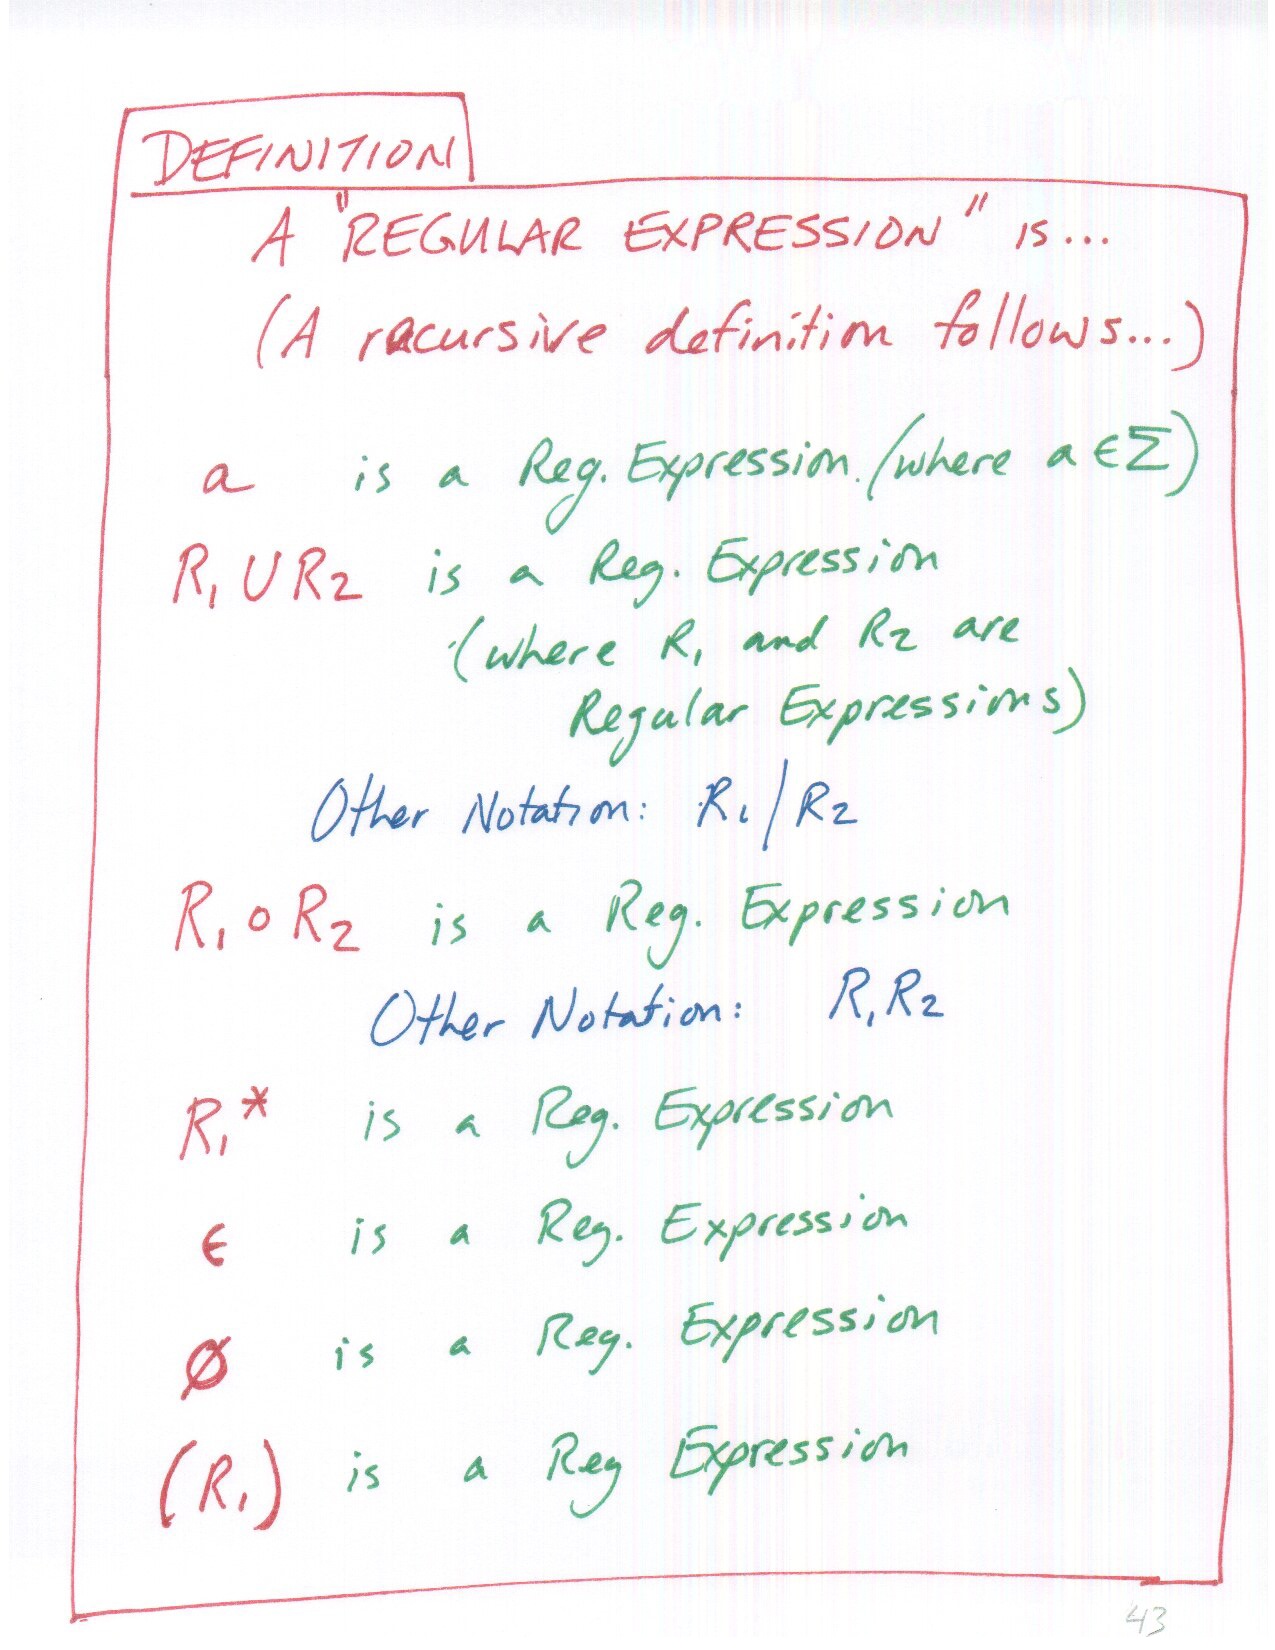 DEFINITION
A "REGULAR EXPRESSION" is...
(A recursive definition follows...)
a is a Reg. Expression. (where a ϵ Σ)
R₁ ∪ R₂ is a Reg. Expression
(where R₁ and R₂ are
Regular Expressions)
Other Notation: R₁ | R₂
R₁ ∘ R₂ is a Reg. Expression
Other Notation: R₁R₂
R₁* is a Reg. Expression
ϵ is a Reg. Expression
∅ is a Reg. Expression
(R₁) is a Reg Expression
43